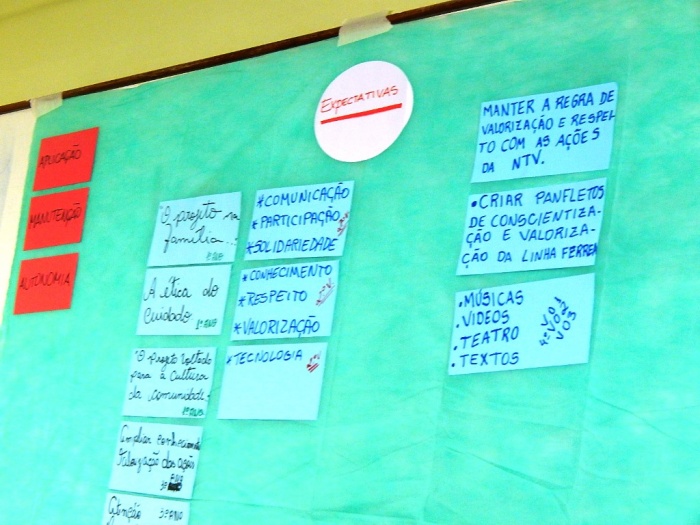 EXPECTATIVAS
APLICAÇÃO
MANUTENÇÃO
AUTONOMIA
"O projeto na
família...
A ética do
cuidado
1º ANO
O projeto voltado
para a cultura
da comunidade.
1º ANO
Ampliar
Valorização das ações
3º ANO
Atenção 3º ANO
*COMUNICAÇÃO
*PARTICIPAÇÃO
*SOLIDARIEDADE
*CONHECIMENTO
*RESPEITO
*VALORIZAÇÃO
*TECNOLOGIA
MANTER A REGRA DE
VALORIZAÇÃO E RESPEI-
TO COM AS AÇÕES
DA NTV.
•CRIAR PANFLETOS
DE CONSCIENTIZA-
ÇÃO E VALORIZA-
ÇÃO DA LINHA FERREA
•MÚSICAS
•VIDEOS
•TEATRO
•TEXTOS